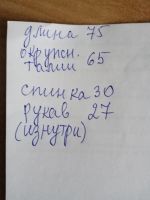 длина 75
окружн.
талии 65
спинка 30
рукав 27
(изнутри)